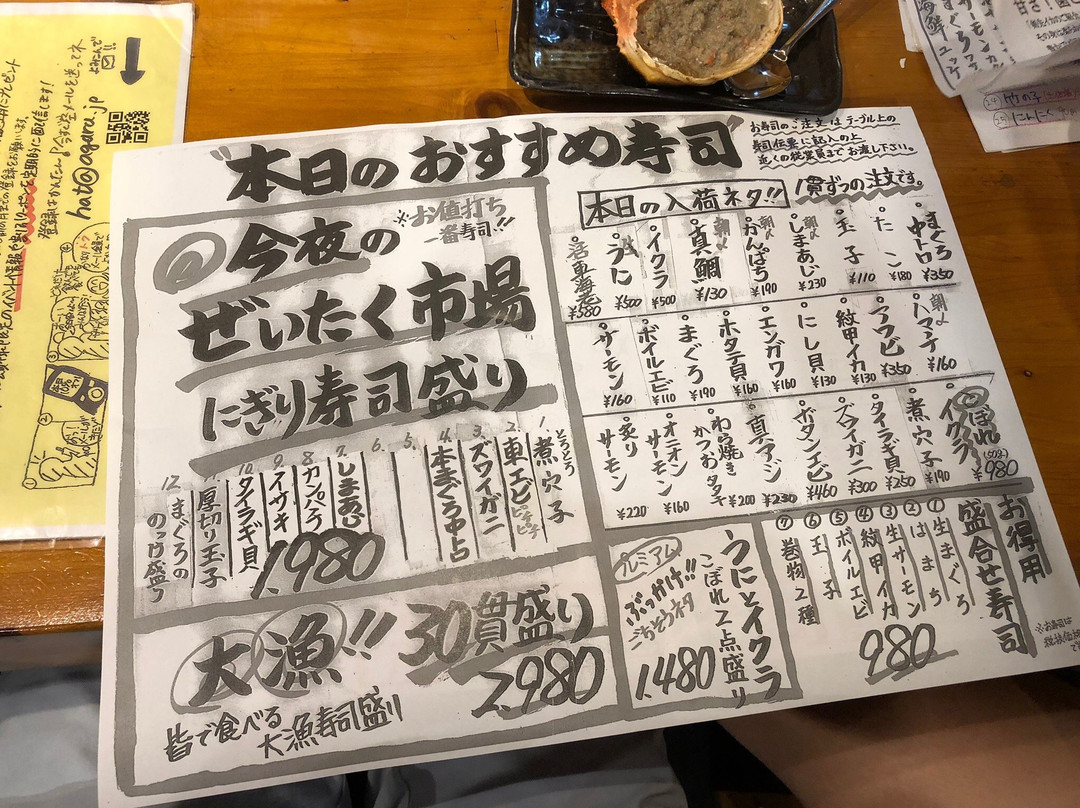 "本日のおすすめ寿司"
お寿司のご注文はテーブル上の
寿司伝票に記入の上
近くの従業員までお渡し下さい。
本日の入荷ネタ!!!
1貫ずつの注文です。
まぐろ中トロ ¥350
たこ ¥180
玉子 ¥110
朝〆 しまあじ ¥230
朝〆 かんぱち ¥190
朝〆 真鯛 ¥130
イクラ ¥500
うに ¥500
活車海老 ¥580
朝〆 ハマチ ¥160
アワビ ¥350
紋甲イカ ¥130
にし貝 ¥130
エンガワ ¥160
ホタテ貝 ¥160
まぐろ ¥190
ボイルエビ ¥110
サーモン ¥160
こぼれイクラ (50g) ¥980
煮穴子 ¥190
タイラギ貝 ¥250
ズワイガニ ¥300
ボタンエビ ¥460
真アジ ¥230
わら焼きかつおタタキ ¥200
オニオンサーモン ¥160
炙りサーモン ¥220
※お値打ち
一番寿司!!
今夜の
ぜいたく市場
にぎり寿司盛り
1. とろとろ煮穴子
2. 車エビ
3. ズワイガニ
4. 本まぐろ中トロ
5.
6.
7. しまあじ
8. カンパチ
9. イサキ
10. タイラギ貝
11. 厚切り玉子
12. まぐろのっけ盛り
1,980
大漁!! 30貫盛り
2,980
皆で食べる
大漁寿司盛り
うにとイクラ
こぼれ2点盛り
プレミアム
ぶっかけ!!
ごちそうネタ
1,480
お得用
盛合せ寿司
①生まぐろ
②はまち
③生サーモン
④紋甲イカ
⑤ボイルエビ
⑥玉子
⑦巻物2種
980
※お寿司は
hat@ogara.jp